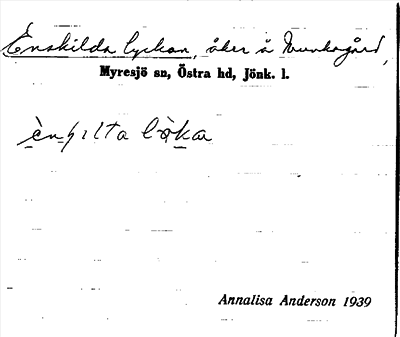 Enskilda lyckan, åker å Munkagård,
Myresjö sn, Östra hd, Jönk. l.
Annalisa Anderson 1939